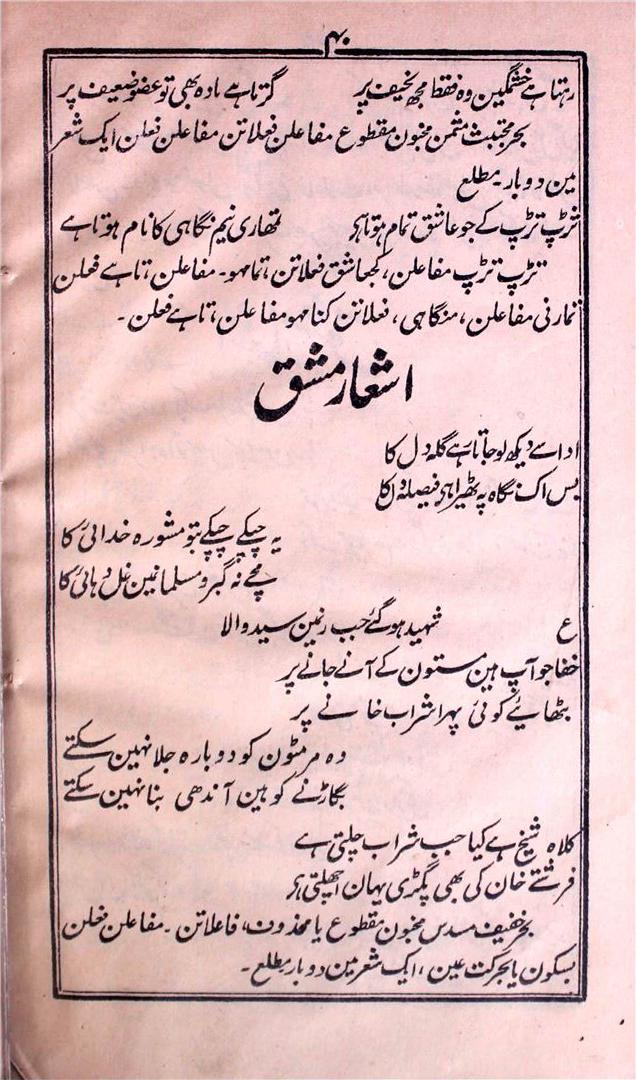 ۴۰
رہتا ہے خشمگین وہ فقط مجھ نحیف پر گرتا ہے مادہ بھی تو عضو ضعیف پر
بحر مجتبث مثمن مخبون مقطوع مفاعلن فعلاتن مفاعلن فعلن ایک شعر
مین دوبار ۔ مطلع
تڑپ تڑپ کے جو عاشق تمام ہوتا ہی تمھاری نیم نگاہی کا نام ہوتا ہے
تڑپ تڑپ مفاعلن، کجعاشق فعلاتن، تمامہو۔ مفاعلن، تاہے فعلن
تمارنی مفاعلن، منگاہی، فعلاتن کنامہو مفاعلن، تاہے فعلن۔
اشعار مشق
ادا سے دیکھ لو جاتا رہے گلہ دل کا
بس اک نگاہ پہ ٹھیرا ہی فیصلہ دل کا
یہ چپکے چپکے بتو مشورہ خدائی کا
مچے نہ گبرو مسلمانمین غل دہائی کا
ع شہید ہو گئے جب رنمین سید والا
خفا جو آپ ہین مستون کے آنے جانے پر
بٹھایے کوئی پہرا شراب خانے پر
وہ مر مٹون کو دوبارہ جلا نہین سکتے
بگاڑنے کو ہین آندھی بنا نہین سکتے
کلاہ شیخ ہے کیا جب شراب چلتی ہے
فرشتے خان کی بھی پگڑی یہان اچھلتی ہی
بحر خفیف مسدس مخبون مقطوع یا محذوف، فاعلاتن ۔ مفاعلن فعلن
بسکون یا بحرکت عین، ایک شعر مین دوبار مطلع۔